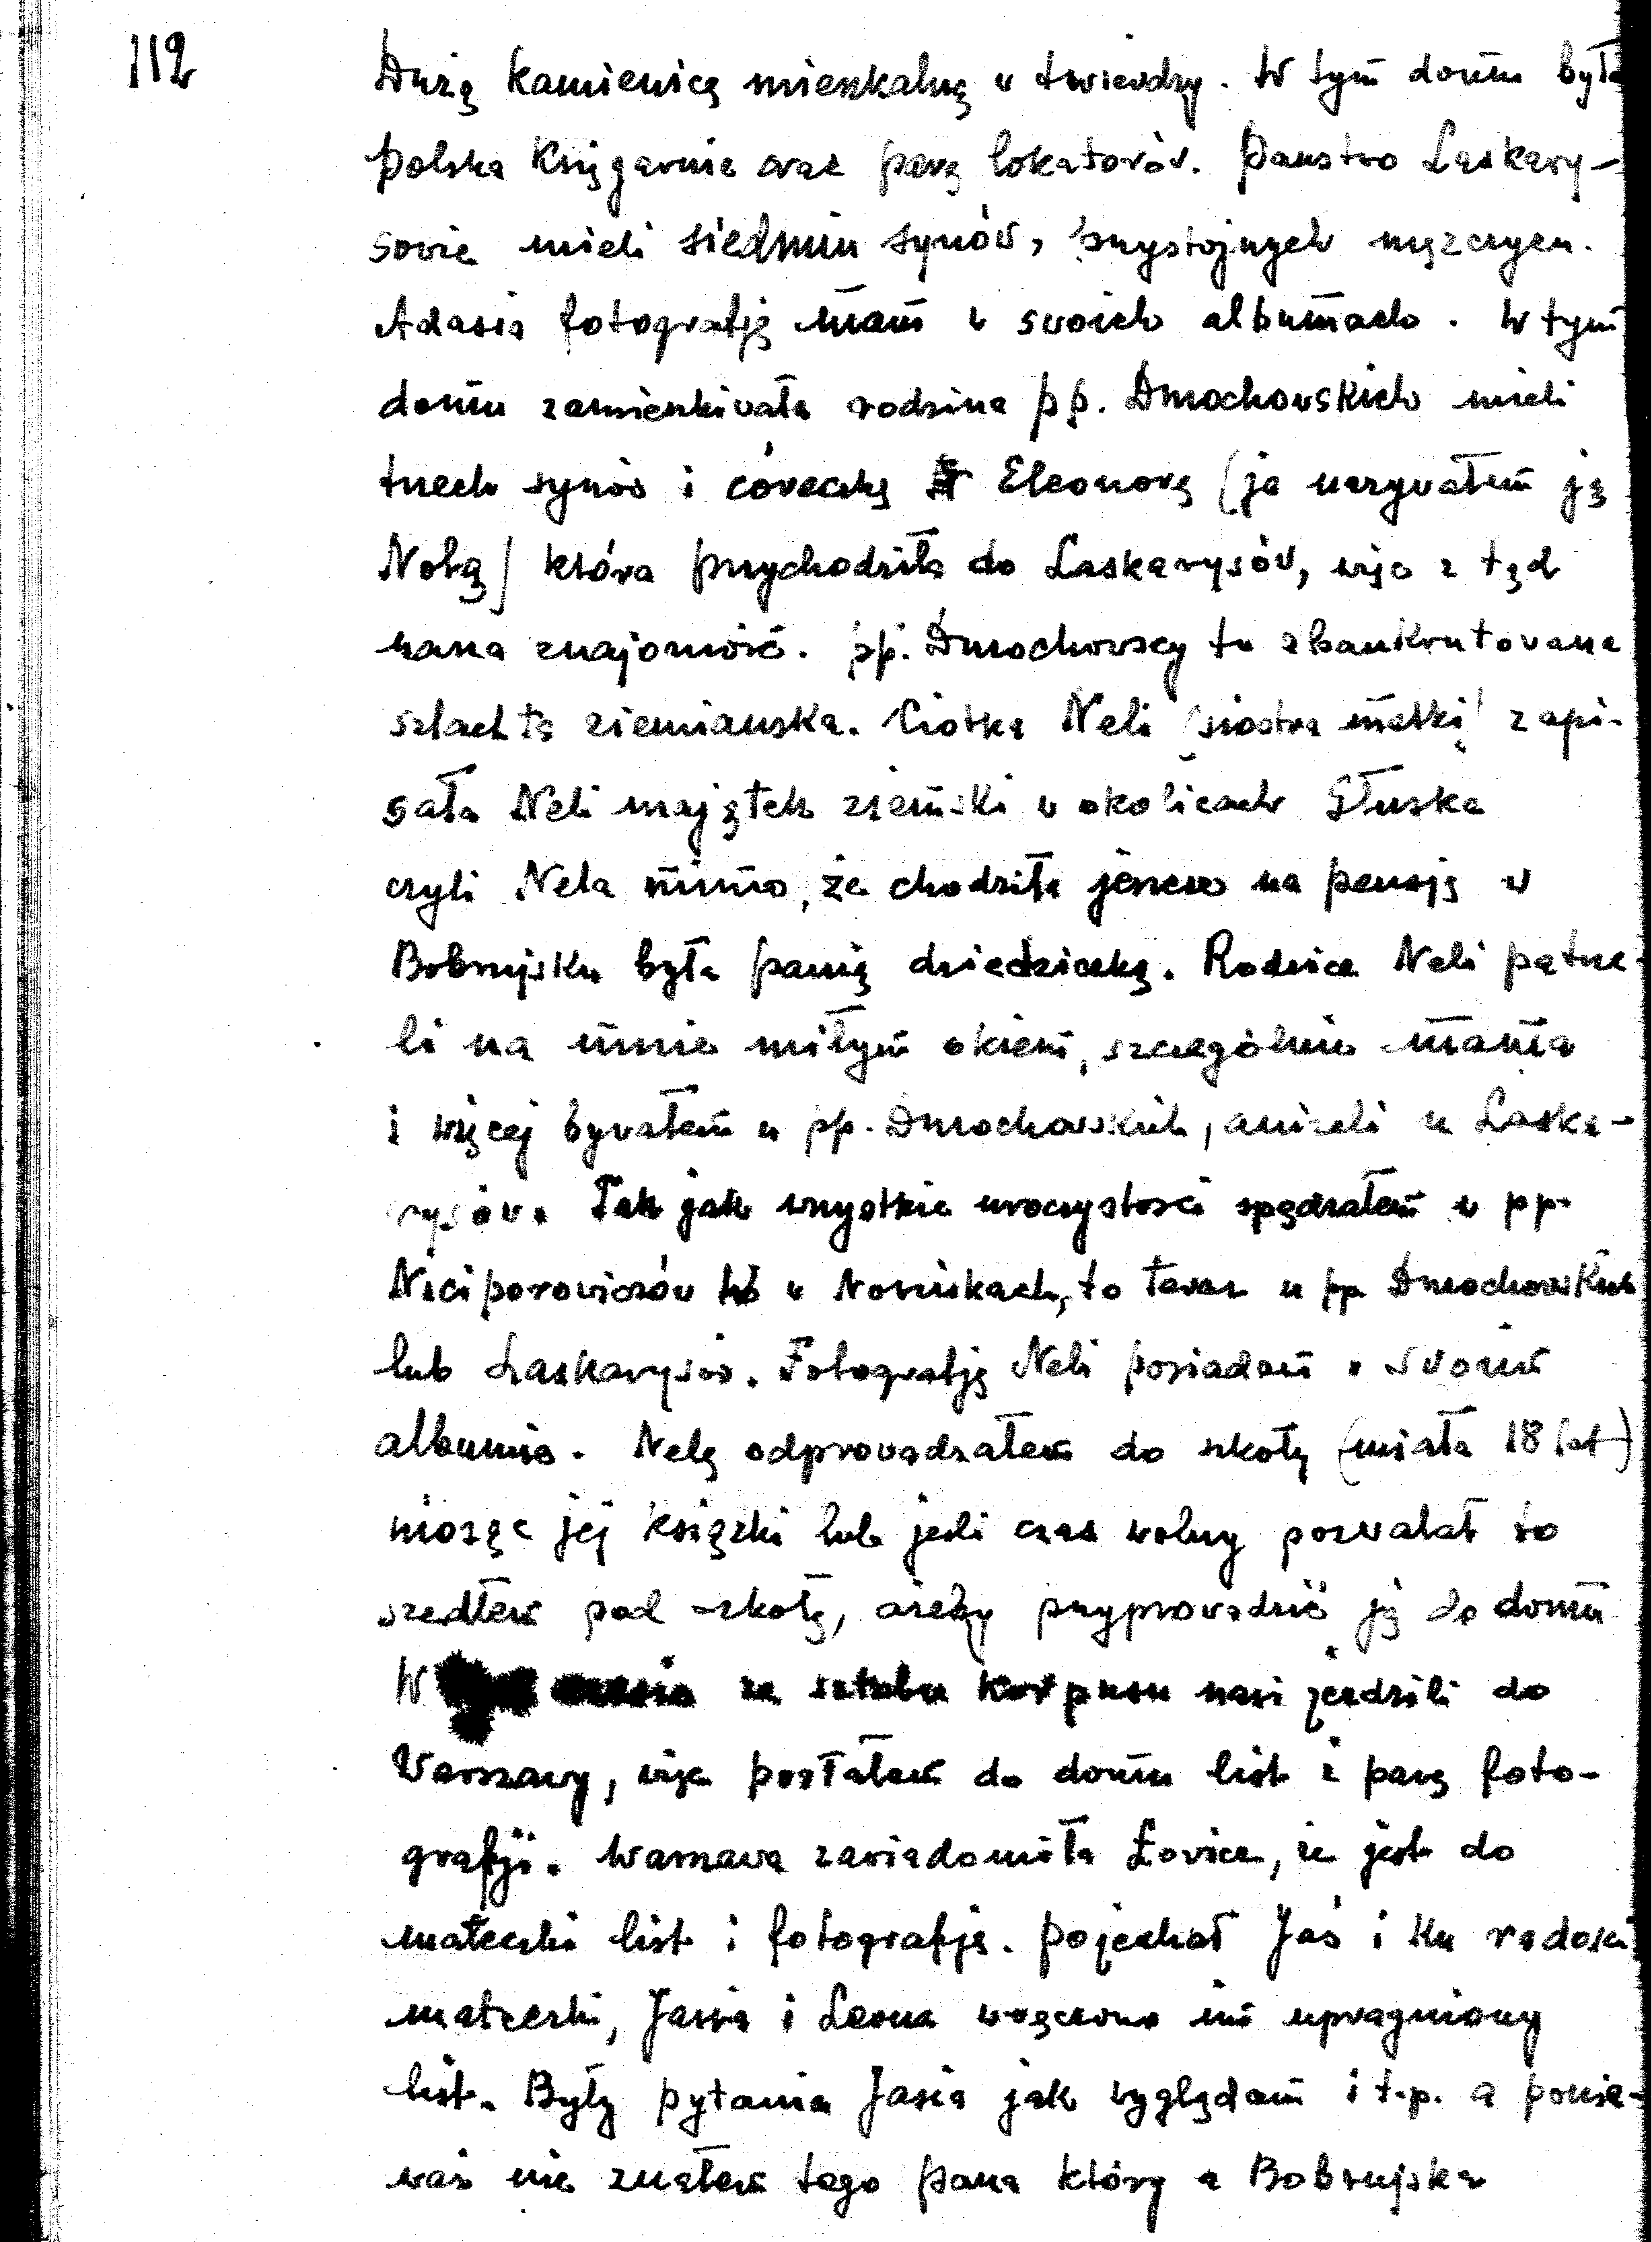 112
Dużą kamienicę mieszkalną w twierdzy. W tym domu była
polska księgarnia oraz parę lokatorów. Państwo Laskary-
sowie mieli siedmiu synów, przystojnych mężczyzn.
Adasia fotografję mam w swoich albumach. W tym
domu zamieszkiwała rodzina pp. Dmochowskich mieli
trzech synów i córeczkę Eleonorę (ja nazywałem ją
Nelą) która przychodziła do Laskarysów, więc z tąd
nasza znajomość. pp. Dmochowscy to zbankrutowana
szlachta ziemiańska. Ciotka Neli (siostra matki) zapi-
sała Neli majątek ziemski w okolicach Głuska
czyli Nela mimo, że chodziła jeszcze na pensję w
Bobrujsku była panią dziedziczką. Rodzice Neli patrze-
li na mnie miłym okiem, szczególnie mama
i więcej bywałem u pp. Dmochowskich, aniżeli u Laska-
rysów. Tak jak wszystkie uroczystości spędzałem u pp.
Niciporowiczów w Nowinkach, to teraz u pp Dmochowskich
lub Laskarysów. Fotografję Neli posiadam w swoim
albumie. Nelę odprowadzałem do szkoły (miała 18 lat)
niosąc jej książki lub jeśli czas wolny pozwalał to
szedłem pod szkołę, ażeby przyprowadzić ją do domu
W ze sztabu korpusu nasi jeździli do
Warszawy, więc posłałem do domu list i parę foto-
grafji. Warszawa zawiadomiła Łowicz, że jest do
mateczki list i fotografje. pojechał Jaś i ku radości
mateczki, Jasia i Leona wręczono im upragniony
list. Były pytania Jasia jak wyglądam i t.p. a ponie-
waż nie znałem tego pana który z Bobrujska